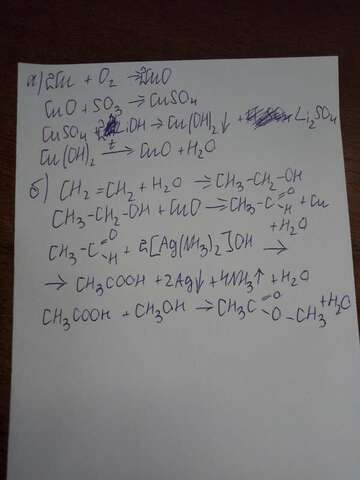 а) 2Cu + O₂ → 2CuO
CuO + SO₃ → CuSO₄
CuSO₄ + 2LiOH → Cu(OH)₂ ↓ + Li₂SO₄
Cu(OH)₂ →t CuO + H₂O
б) CH₂=CH₂ + H₂O → CH₃-CH₂-OH
CH₃-CH₂-OH + CuO → CH₃-C=O H + Cu
+ H₂O
CH₃-C=O H + 2[Ag(NH₃)₂]OH →
→ CH₃COOH + 2Ag↓ + 4NH₃↑ + H₂O
CH₃COOH + CH₃OH → CH₃C=O O-CH₃ + H₂O